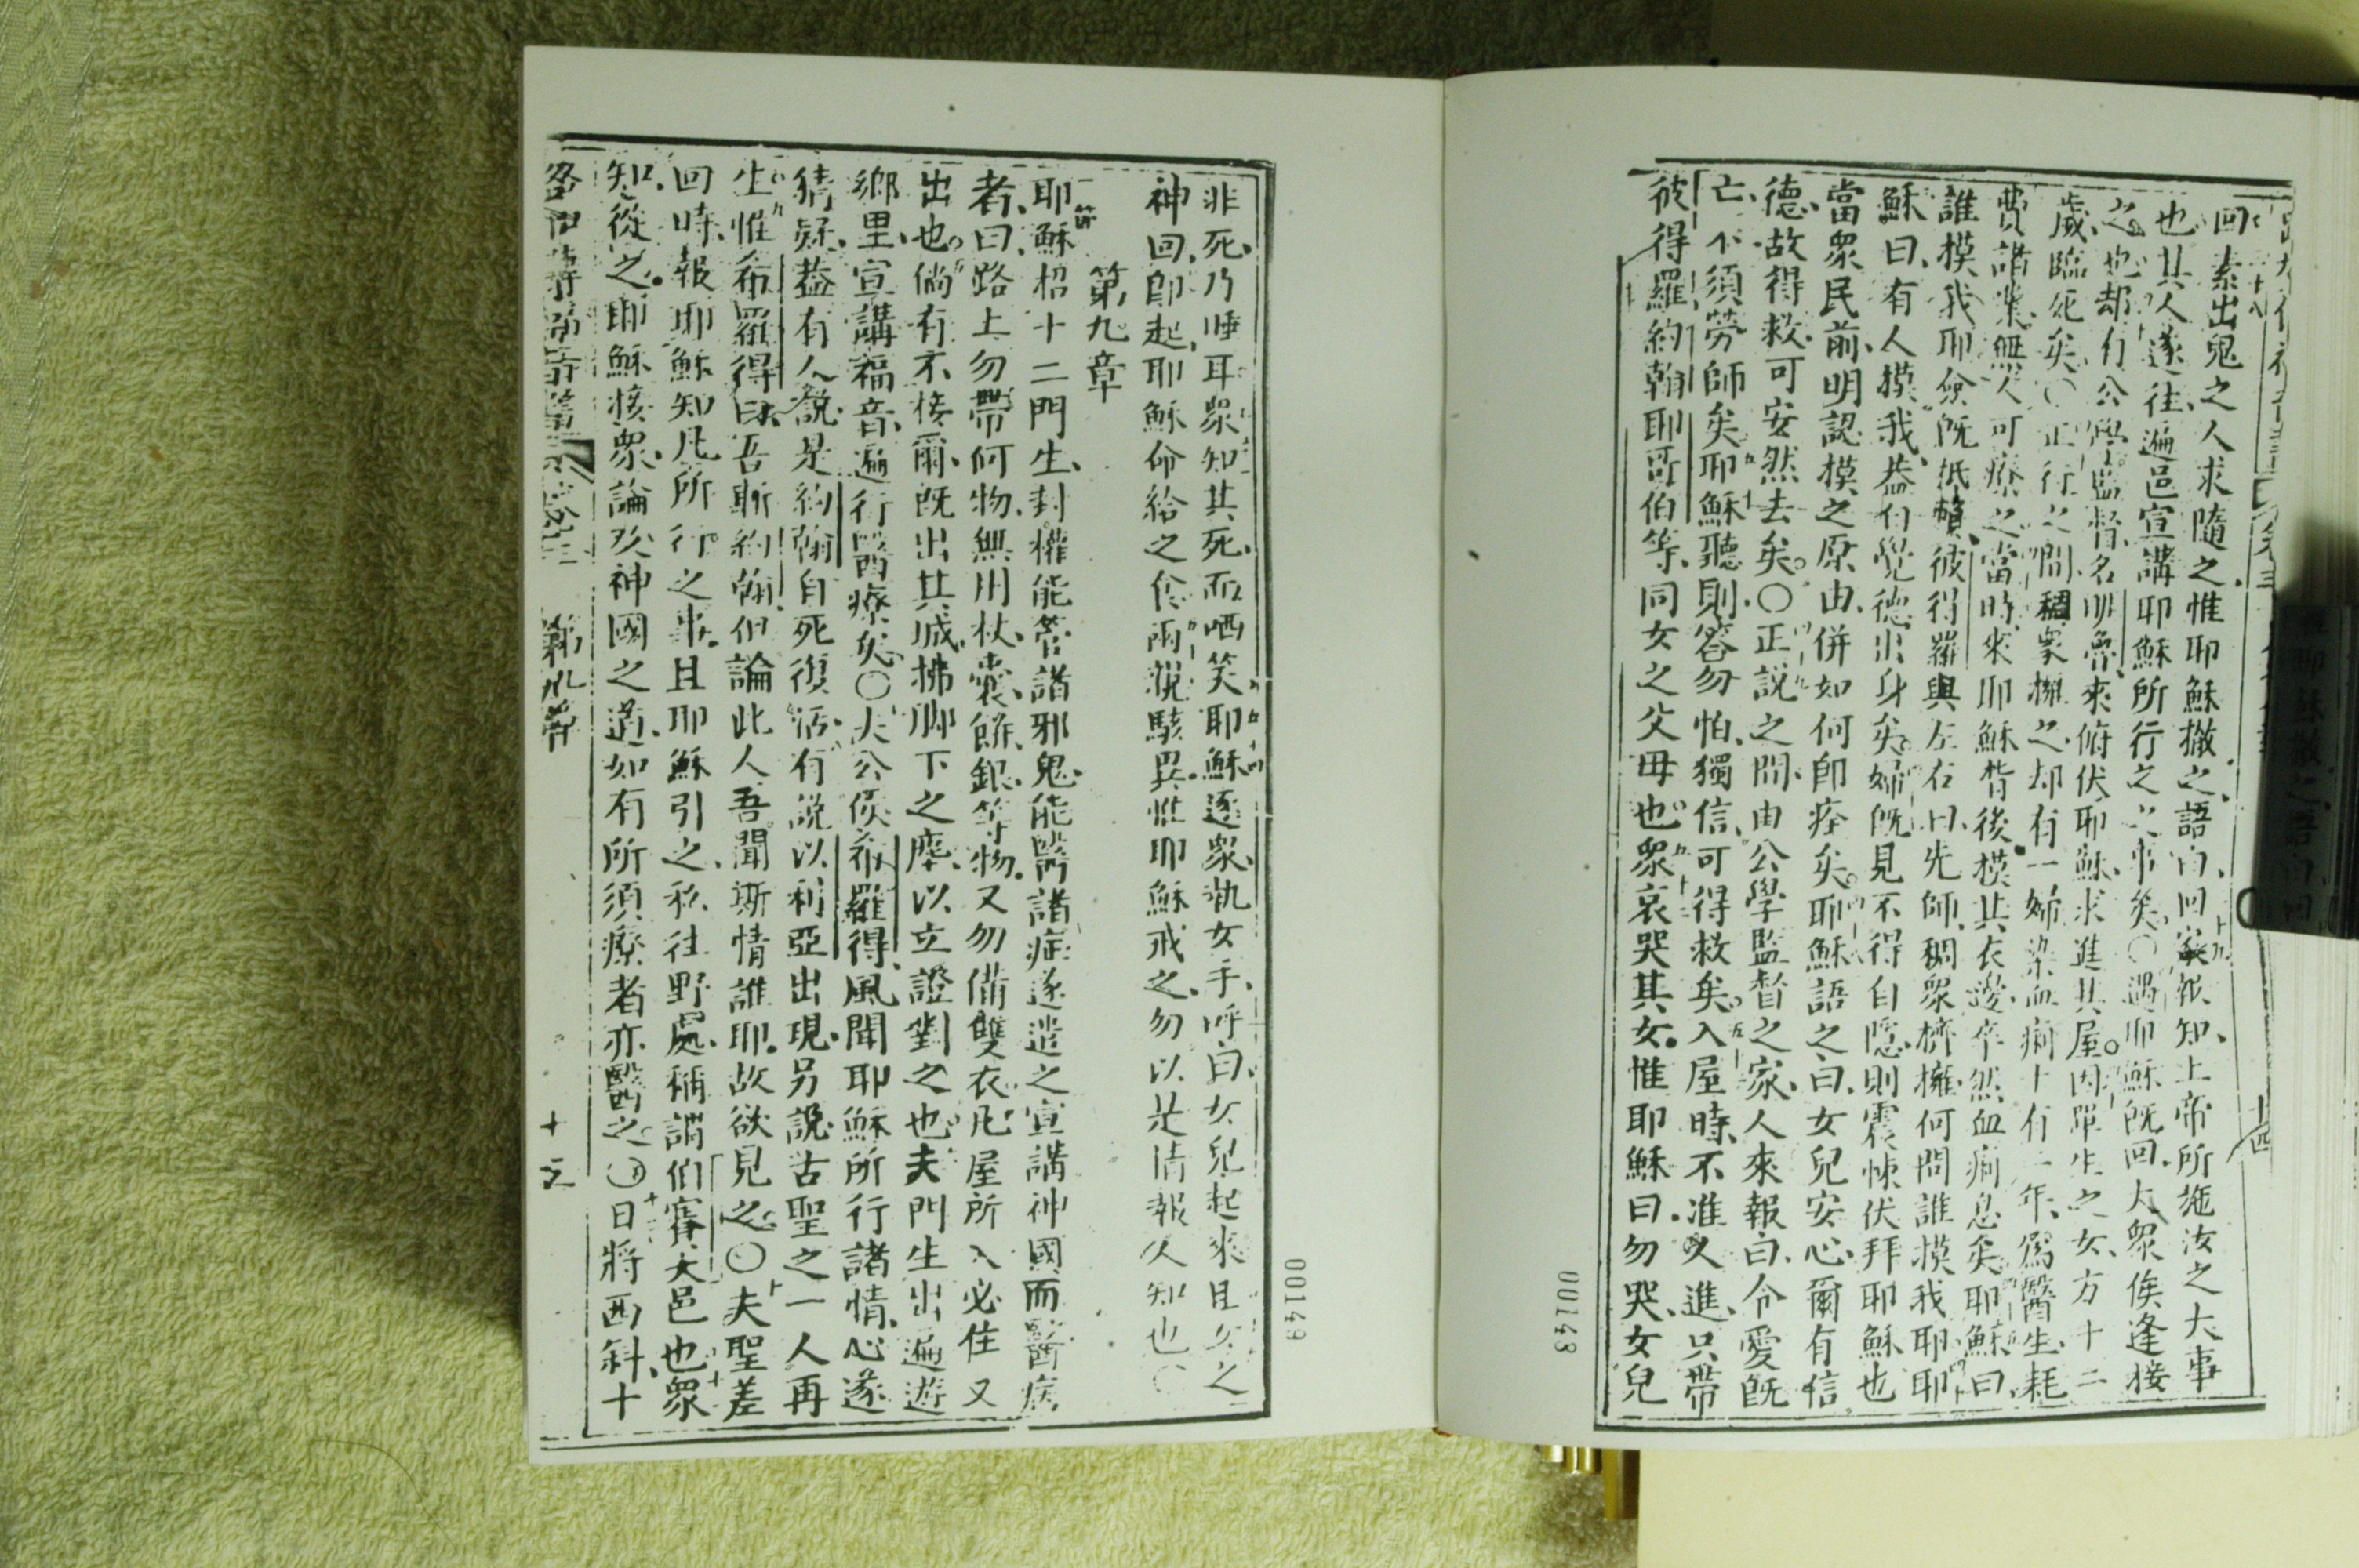 回素出鬼之人求隨之惟耶穌撤之語白回家報知上帝所施汝之大事
也其人遂往遍邑宣講耶穌所行之事矣〇遇耶穌既回大眾俟逢接
之也却有公學監督名來俯伏耶穌求進其屋因單生之女方十二
歲臨死矣〇正行之間稠眾擁之却有一婦染血痢十有二年為醫生耗
費諸業無人可療之當時來耶穌背後模其衣邊卒然血痢息矣耶穌曰
誰摸我耶僉既抵賴彼得羅與左右曰先師稠眾擠擁何問誰摸我耶耶
穌曰有人摸我葢自覺德出身矣婦既見不得自隱則震悚伏拜耶穌也
當眾民前明認摸之原由併如何即痊矣耶穌語之曰女兒安心爾有信
德故得救可安然去矣〇正說之間由公學監督之家人來報曰令愛既
亡不須勞師矣耶穌聽則答勿怕獨信可得救矣入屋時不准久進只帶
彼得羅約翰耶哥伯等同女之父毋也眾哀哭其女惟耶穌曰勿哭女兒
十四
00148
非死乃睡耳眾知其死而哂笑耶穌逐眾執女手呼曰女兒起來且女之
神回即起耶穌命給之食兩親駭異惟耶穌戒之勿以是情報人知也〇
第九章
耶穌招十二門生封權能管諸邪鬼能醫諸症遂遣之宣講神國而醫病
者曰路上勿帶何物無用杖囊餅銀等物又勿備雙衣凡屋所入必住又
出也倘有不接爾既出其城拂脚下之塵以立證對之也夫門生出遍遊
鄉里宣講福音遍行醫療矣〇夫公侯希羅得風聞耶穌所行諸情心遂
猜疑葢有人說是約翰自死復活有說以利亞出現另說古聖之一人再
生惟希羅得曰吾斬約翰但論此人吾聞斯情誰耶故欲見之〇夫聖差
回時報耶穌知凡所行之事且耶穌引之私往野處稱謂伯賽大邑也眾
知從之耶穌接眾論及神國之道如有所須療者亦醫之〇日將西斜十
路加傳福音書 卷三 第九章
00149